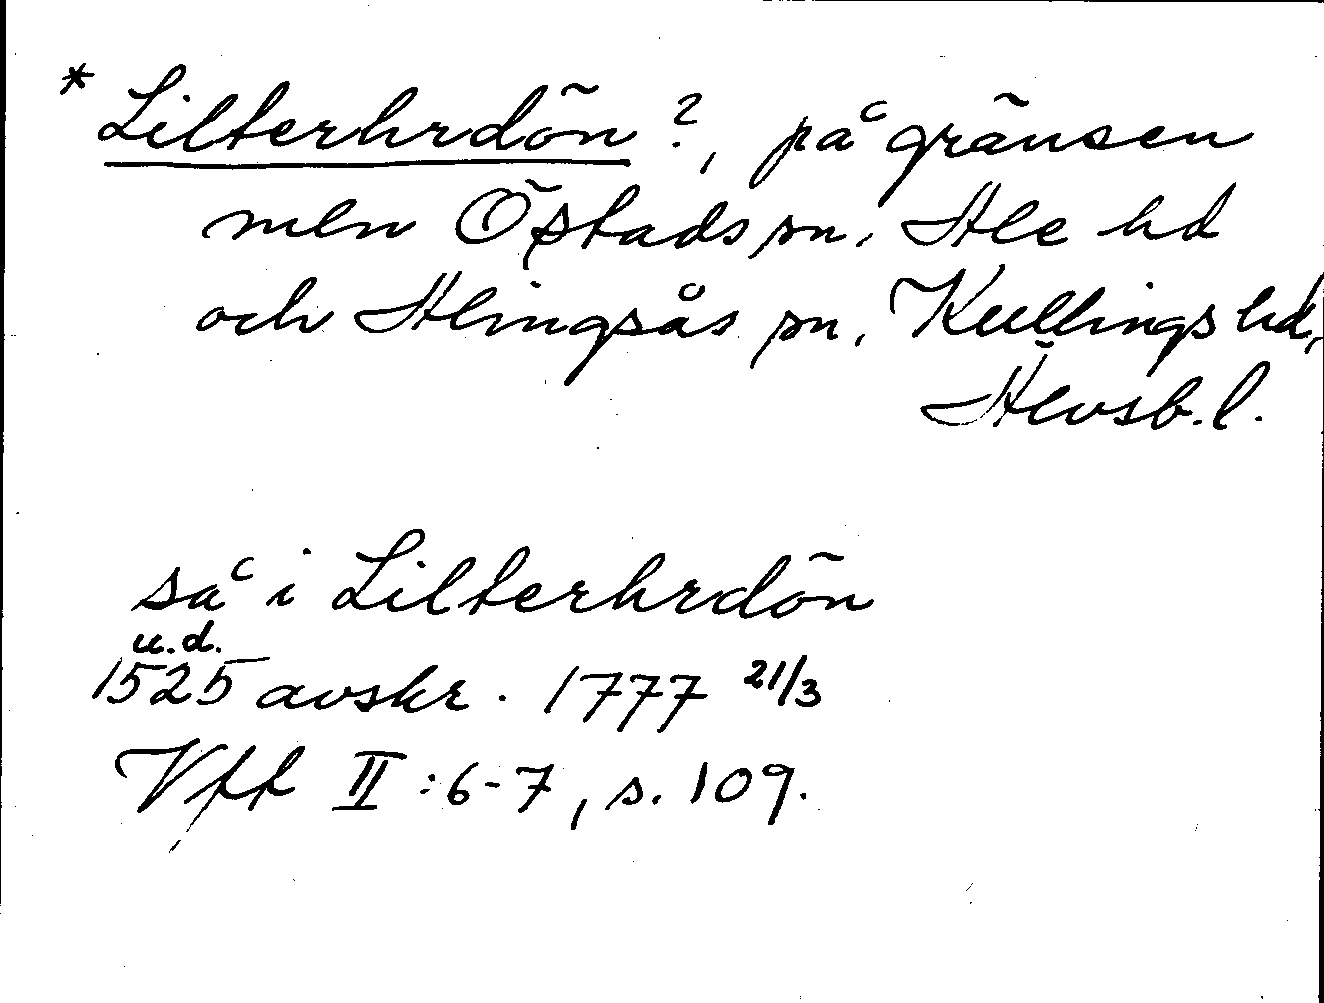 * Lilterhrdön ?, på gränsen
mln Östads sn, Ale hd
och Alingsås sn, Kullings hd,
Älvsb. l.
så i Lilterhrdön
u.d.
1525 avskr. 1777 21/3
Vff II : 6-7, s. 109.